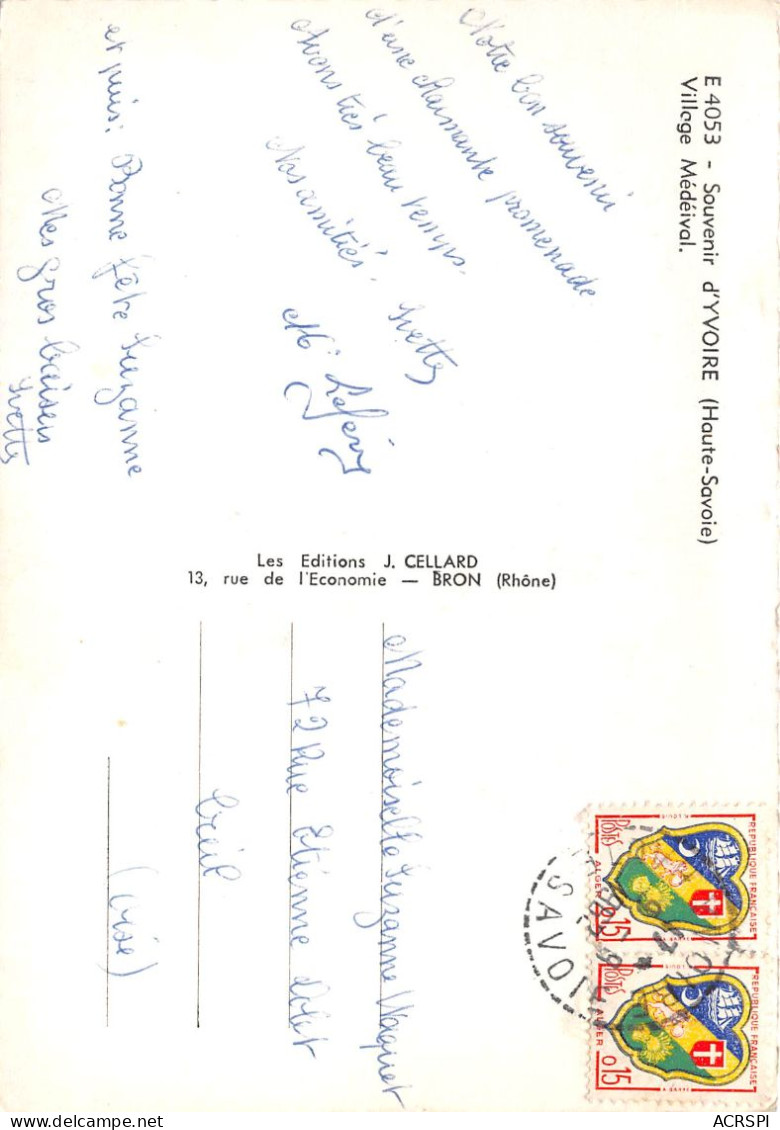 E 4053 - Souvenir d'YVOIRE (Haute-Savoie)
Village Médéival.
Notre bon souvenir
d'une charmante promenade
Avons très beau temps.
Nos amitiés.
Yvette
et puis: Bonne fête Suzanne
Mes gros baisers
Yvette
Les Editions J. CELLARD
13, rue de l'Economie — BRON (Rhône)
Mademoiselle Suzanne Waquet
72 Rue Etienne Dolet
Creil
(Oise)
REPUBLIQUE FRANÇAISE
POSTES
ALGER 0,15
REPUBLIQUE FRANÇAISE
POSTES
ALGER 0,15
SAVOIE
ACRSPI